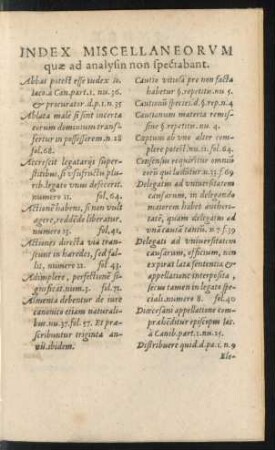 INDEX MISCELLANEORVM
quæ ad analysin non spectabant.
Abbas potest esse iudex in
loco à Can. part. 1. nu. 36.
& procurator. d. p. 1. n. 35
Ablata male si sint incerta
eorum dominium trans-
fertur in possessorem. n. 28
fol. 68.
Accrescit legatarijs super-
stitibus, si vsusfructus plu-
rib. legato vnus defecerit.
numero 11. fol. 64.
Actionē habens, si non vult
agere, reddēdo liberatur,
numero 13. fol. 41.
Actiones directa via tran-
seunt in hæredes, sed fal-
lit, numero 21. fol. 43.
Adimplere, perfectionē si-
gnificat. num. 3. fol. 71.
Alimenta debentur de iure
canonico etiam naturali-
bus. nu. 37. fol. 57. Et præ-
scribuntur triginta an-
nis. ibidem.
Cautio vitiosa pro non facta
habetur §. repetitu. nu. 5.
Cautionū species. d. §. rep. n. 4
Cautionum materia remis-
siue §. repetitu. nu. 4.
Captum ab vno altre com-
potet. nu. 10.
Consensus requiritur omniū
quibus
Delegatum ad vniuersitatem
causarum, in delegando
maiorem habet authori-
tatē, quàm delegatus ad
vnā causā tantū. n. 7. f. 39
Delegati ad vniuersitatem
causarum, officium, non
expirat lata sententia &
appellatione interposita,
secus tamen in legato spe-
ciali. numero 8. fol. 40
Diœcesani appellatione com-
præhēditur episcopus lo-
cà Canib. part. 1. nu. 15.
Distribuere quid. d. pa. 1. n. 9
Ele-